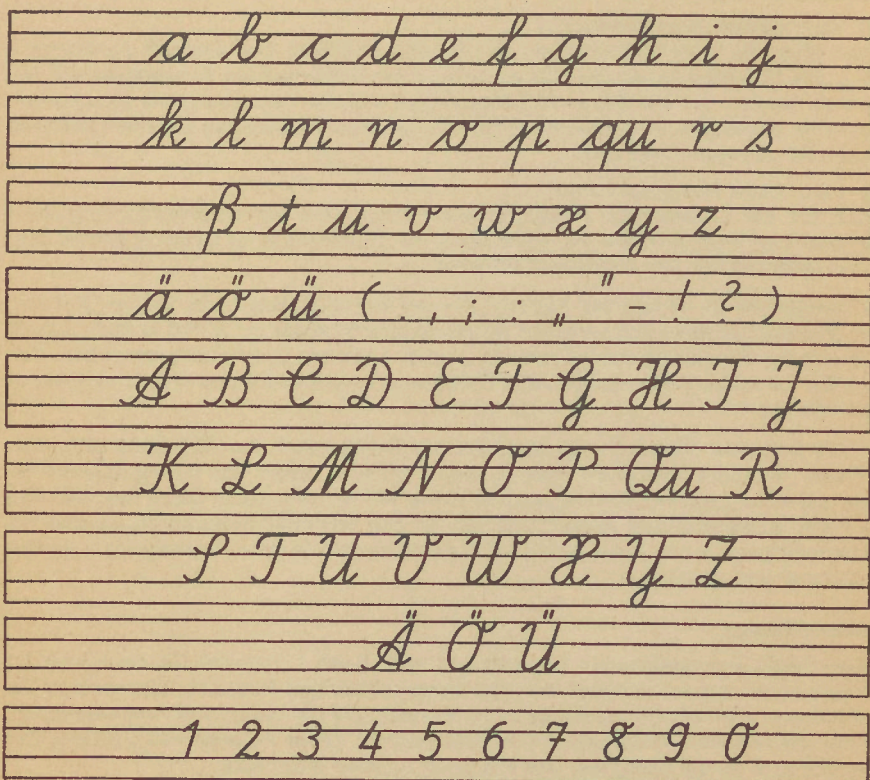 a b c d e f g h i j
k l m n o p qu r s
ß t u v w x y z
ä ö ü ( . , ; : „ " - ! ? )
A B C D E F G H I J
K L M N O P Qu R
S T U V W X Y Z
Ä Ö Ü
1 2 3 4 5 6 7 8 9 0